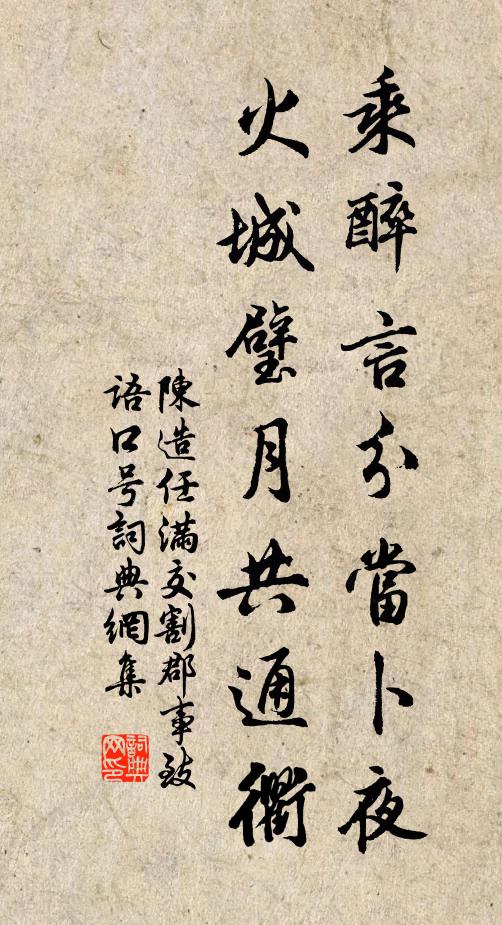 乘醉言分當卜夜
火城璧月共通衢
陳造任滿交割郡事致
語口号詞典網集
詞典网印